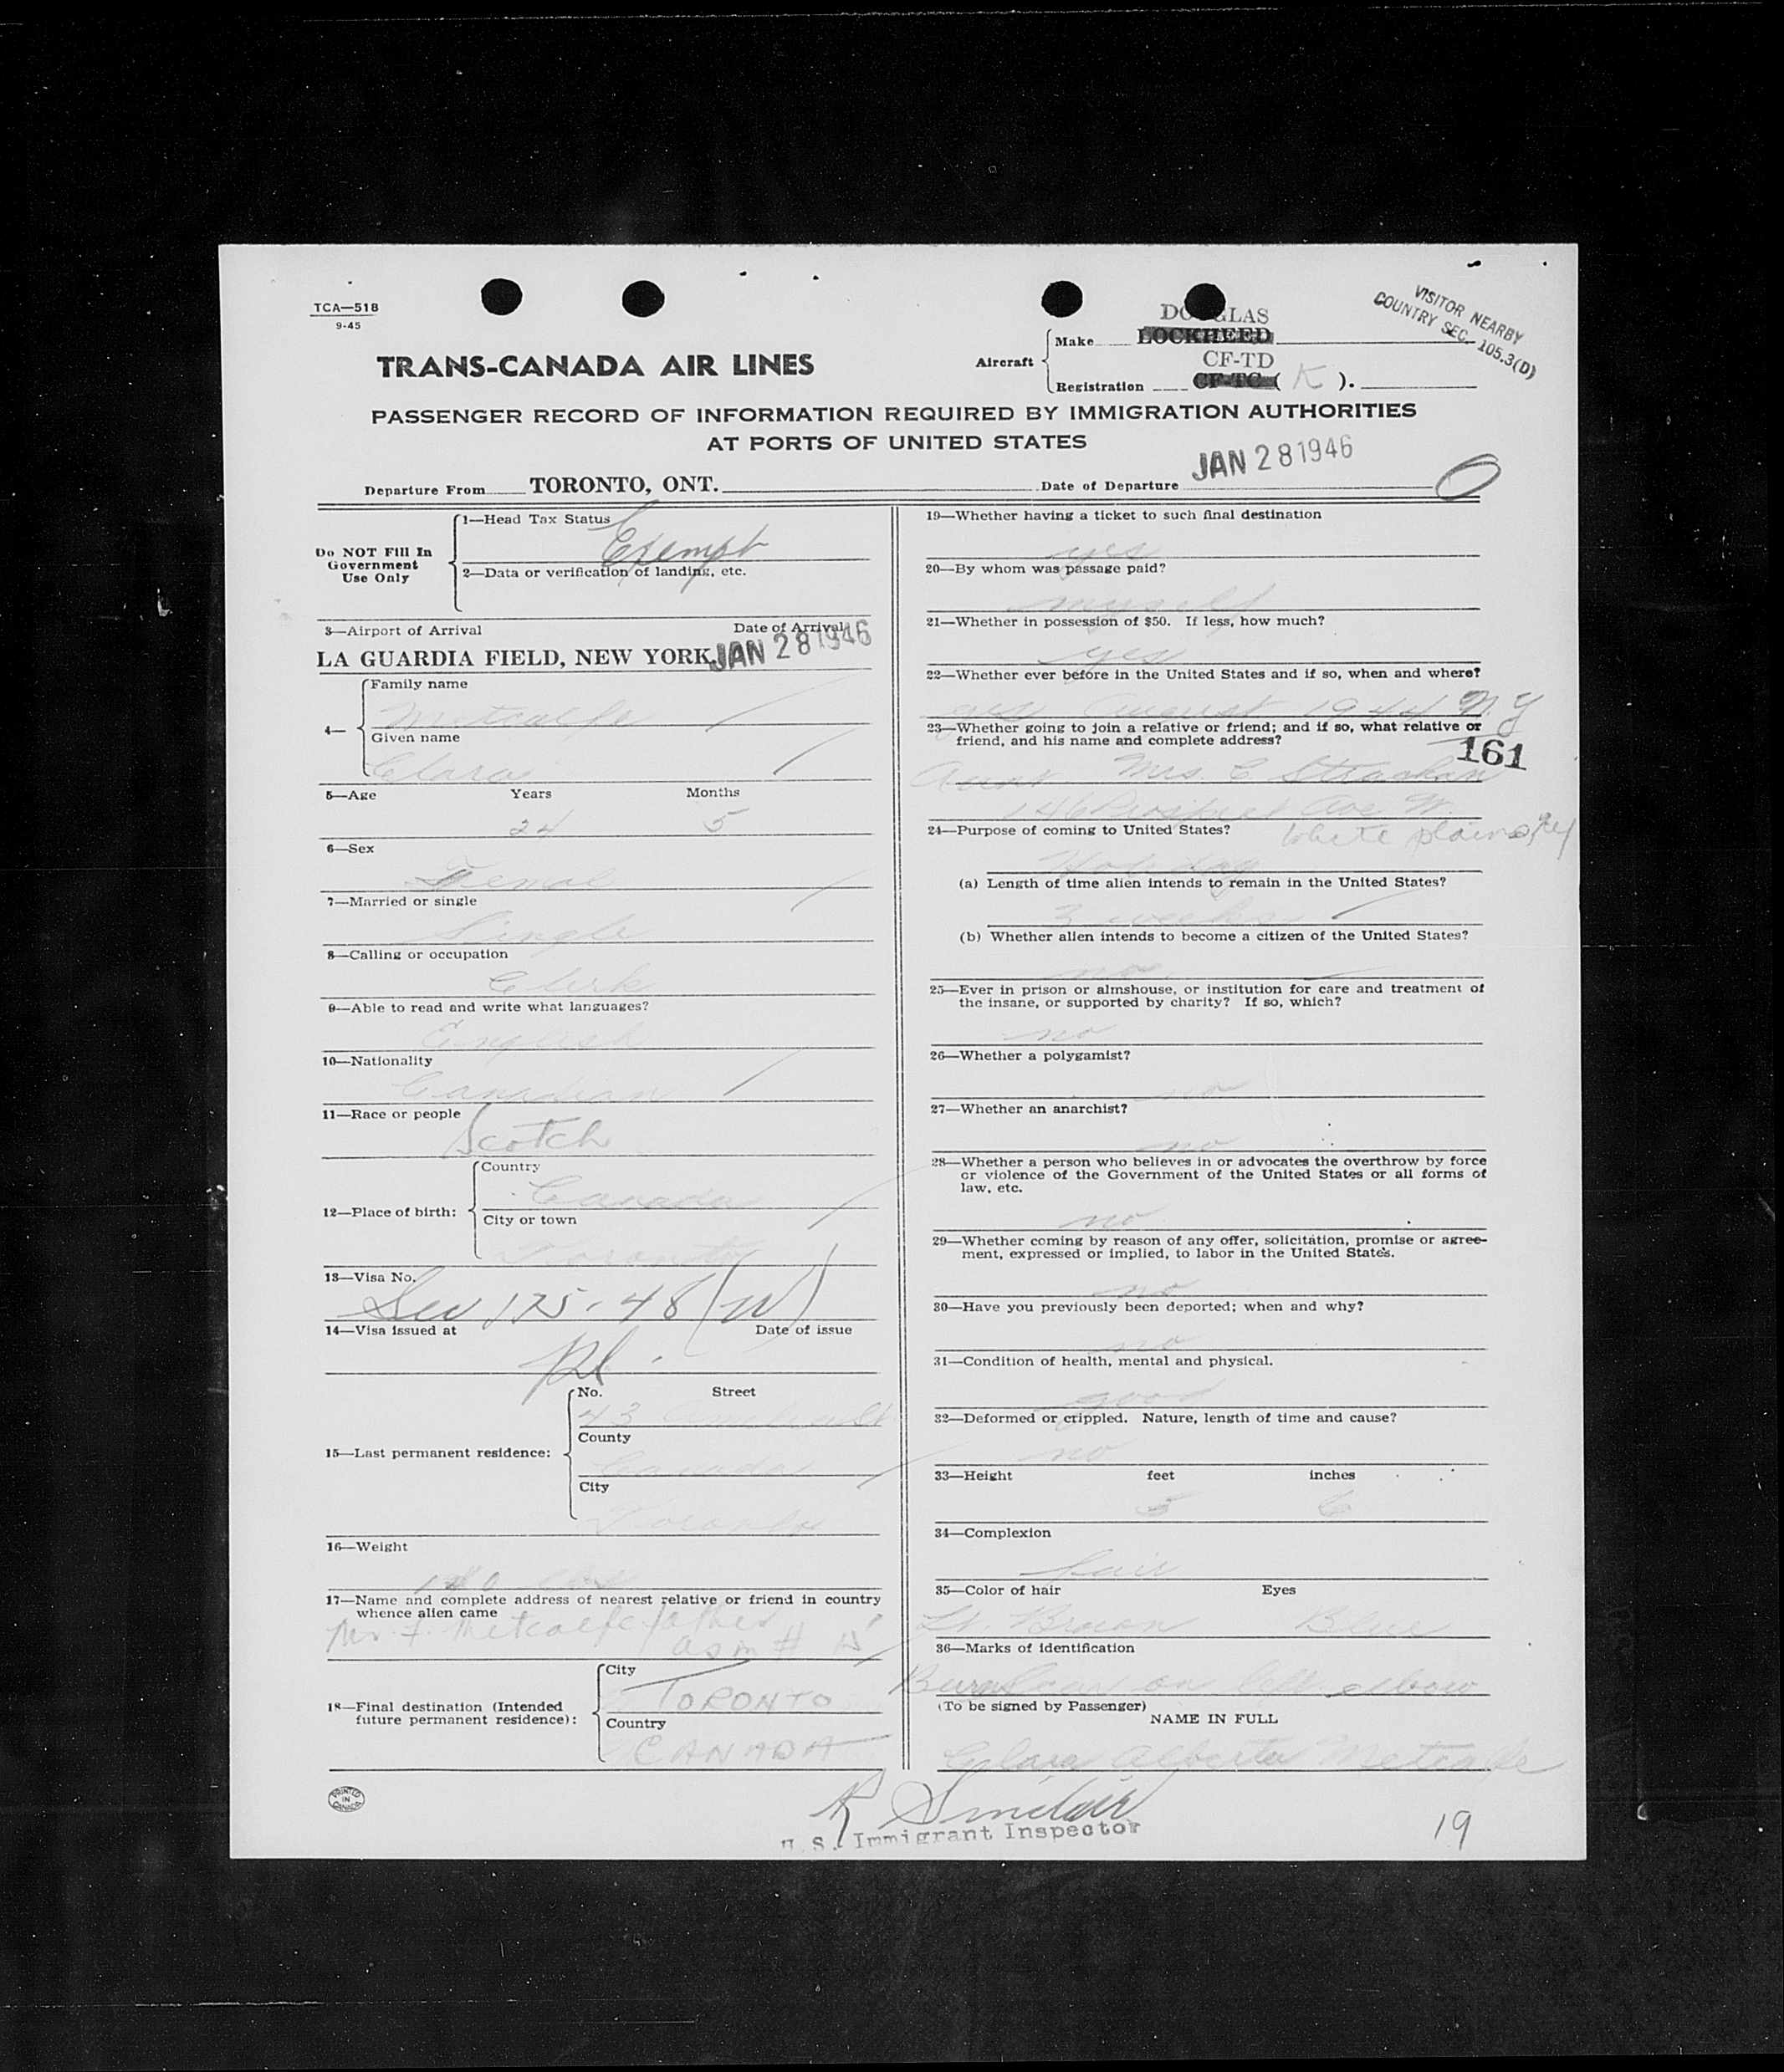 TCA—518
9-45
VISITOR NEARBY
COUNTRY SEC. 105.3(D)
DOUGLAS
Make LOCKHEED
TRANS-CANADA AIR LINES
Aircraft
CF-TD
Registration CF-TC ( K ).
PASSENGER RECORD OF INFORMATION REQUIRED BY IMMIGRATION AUTHORITIES
AT PORTS OF UNITED STATES
Departure From TORONTO, ONT. Date of Departure JAN 28 1946
Do NOT Fill In
Government
Use Only
1—Head Tax Status
Exempt
2—Data or verification of landing, etc.
3—Airport of Arrival Date of Arrival
LA GUARDIA FIELD, NEW YORK JAN 28 1946
4—
Family name
Metcalfe
Given name
Clara
5—Age Years Months
24 5
6—Sex
Female
7—Married or single
Single
8—Calling or occupation
Clerk
9—Able to read and write what languages?
English
10—Nationality
Canadian
11—Race or people
Scotch
12—Place of birth:
Country
Canada
City or town
Toronto
13—Visa No.
Sec 175.48 (W)
14—Visa issued at Date of issue
15—Last permanent residence:
No. Street
43
County
Canada
City
Toronto
16—Weight
17—Name and complete address of nearest relative or friend in country
whence alien came
Mr. F. Metcalfe father
as in # 15
18—Final destination (Intended
future permanent residence):
City
TORONTO
Country
CANADA
PRINTED
IN
CANADA
19—Whether having a ticket to such final destination
yes
20—By whom was passage paid?
myself
21—Whether in possession of $50. If less, how much?
yes
22—Whether ever before in the United States and if so, when and where?
yes August 1944 N.Y
23—Whether going to join a relative or friend; and if so, what relative or
friend, and his name and complete address?
161
Aunt Mrs. C Strachan
146 Prospect Ave W.
24—Purpose of coming to United States? White plains, NY
Holiday
(a) Length of time alien intends to remain in the United States?
3 weeks
(b) Whether alien intends to become a citizen of the United States?
no
25—Ever in prison or almshouse, or institution for care and treatment of
the insane, or supported by charity? If so, which?
no
26—Whether a polygamist?
no
27—Whether an anarchist?
no
28—Whether a person who believes in or advocates the overthrow by force
or violence of the Government of the United States or all forms of
law, etc.
no
29—Whether coming by reason of any offer, solicitation, promise or agree-
ment, expressed or implied, to labor in the United States.
no
30—Have you previously been deported; when and why?
no
31—Condition of health, mental and physical.
good
32—Deformed or crippled. Nature, length of time and cause?
no
33—Height feet inches
5 6
34—Complexion
fair
35—Color of hair Eyes
Lt. Brown Blue
36—Marks of identification
Burn Scar on left elbow
(To be signed by Passenger)
NAME IN FULL
Clara Alberta Metcalfe
R Sinclair
U. S. Immigrant Inspector
19